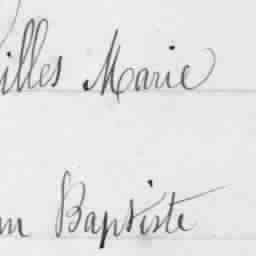 illes Marie
n Baptiste